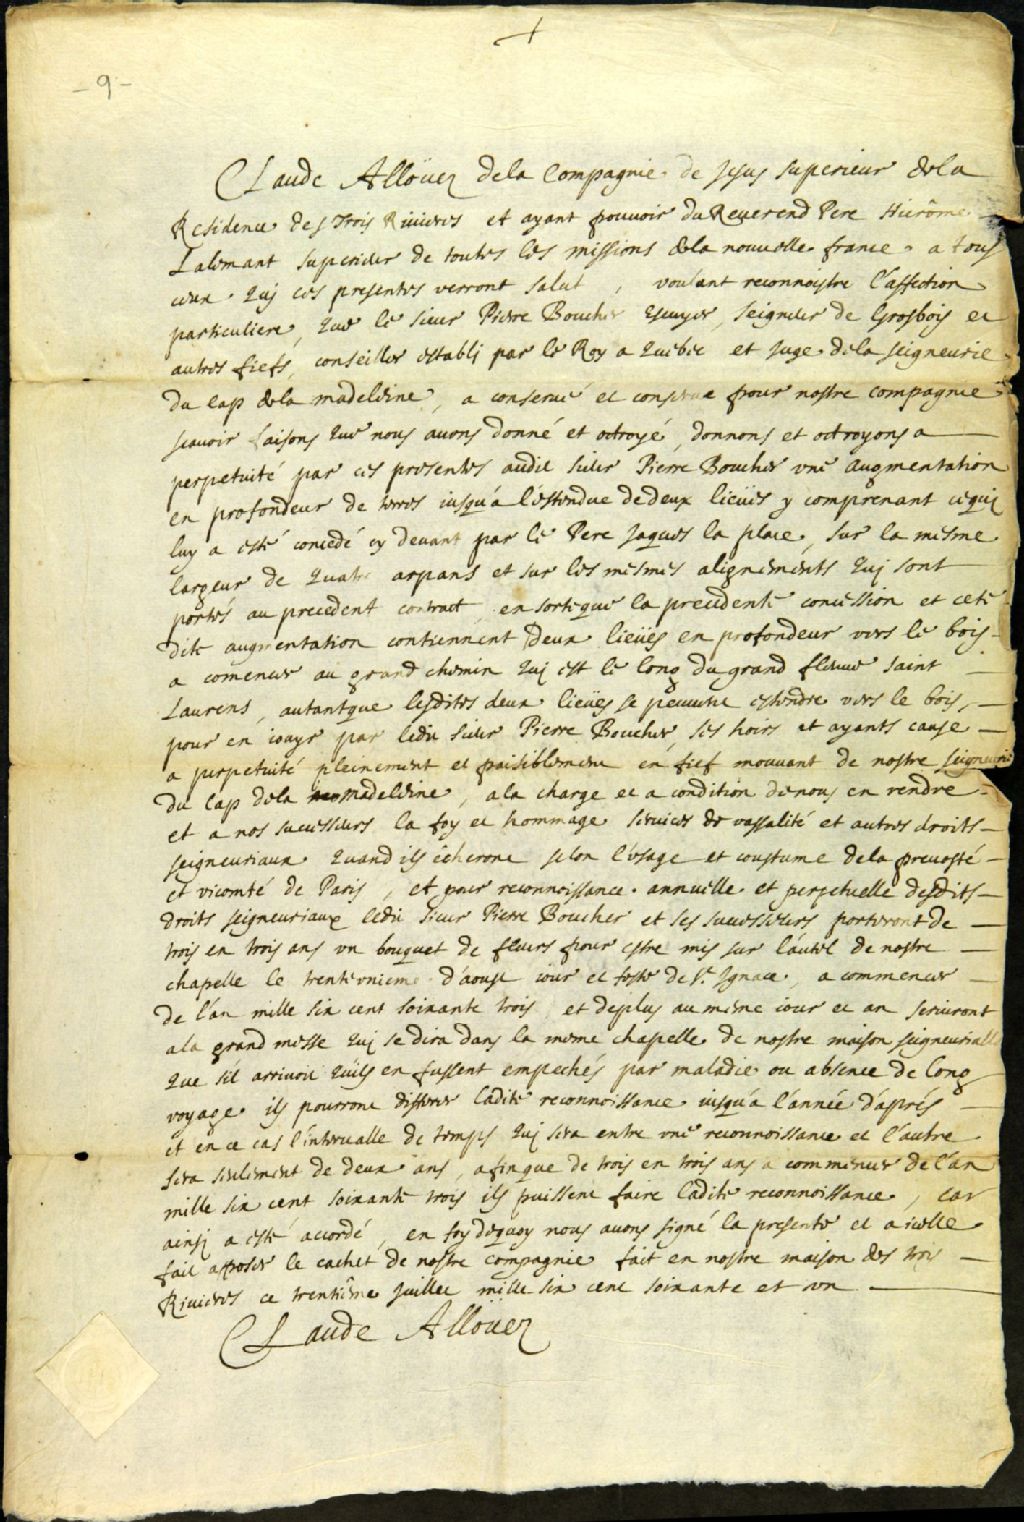 - 9 -
Claude Alloüez dela Compagnie de Jesus superieur dela
Residence des Trois Riuieres et ayant pouuoir du Reuerend Pere Hierôme
Lalemant superieur de toutes les missions dela nouuelle france a tous
ceux quj ces presentes verront salut, voulant reconnoistre l'affection
particuliere, que le sieur Pierre Boucher escuyer, seigneur de Grosbois et
autres fiefs, conseiller establj par le Roy a Quebec et juge dela seigneurie
du cap dela madeleine, a conserué et conserue pour nostre compagnie
scauoir faisons que nous auons donné et octroyé, donnons et octroyons a
perpetuité par ces presentes audit sieur Pierre Boucher vne augmentation
en profondeur de terres iusqu'a l'estendue de deux lieües y comprenant cequj
luy a esté concedé cy deuant par le Pere Jaques la place, sur la mesme
largeur de quatre arpans et sur les mesmes alignements quj sont
portés au precedent contract, en sorte que la precedente concession et cete
dite augmentation contiennent deux lieües en profondeur vers le bois
a comencer au grand chemin quj est le long du grand fleuue saint
Laurens, autant que lesdites deux lieües se peuuent estendre vers le bois,
pour en iouyr par ledit sieur Pierre Boucher, ses hoirs et ayants cause
a perpetuité pleinement et paisiblement en fief mouuant de nostre seigneurie
du cap dela madeleine, ala charge et a condition de nous en rendre
et a nos successeurs la foy et hommage seruices de vassalité et autres droits
seigneuriaux quand ils écheront selon l'vsage et coustume dela preuosté
et vicomté de Paris, et pour reconnoissance annuelle et perpetuelle desdits
droits seigneuriaux ledit sieur Pierre Boucher et ses successeurs porteront de
trois en trois ans vn bouquet de fleurs pour estre mis sur l'autel de nostre
chapelle le trentevnieme d'aoust iour et feste de St. Ignace, a commencer
de l'an mille six cent soixante trois, et deplus au méme iour et an seruiront
ala grand messe quj se dira dans la méme chapelle de nostre maison seigneurialle
que sil arriuoit qu'ils en fussent empechés par maladie ou absence de long
voyage ils pourront differer ladite reconnoissance iusqu'a l'année d'aprés
et en ce cas l'interualle de temps quj sera entre vne reconnoissance et l'autre
sera seulement de deux ans, afin que de trois en trois ans a commencer de l'an
mille six cent soixante trois ils puissent faire ladite reconnoissance, car
ainsj a esté accordé, en foy dequoy nous auons signé la presente et a icelle
fait apposer le cachet de nostre compagnie fait en nostre maison des trois
Riuieres ce trentiême juillet mille six cent soixante et vn
Claude Alloüez